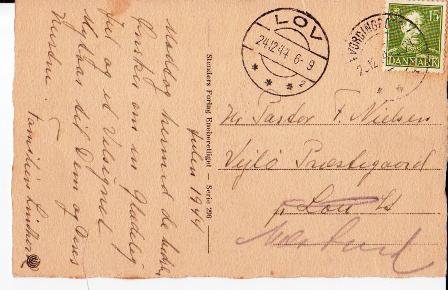 Julen 1944
Modtag hermed de bedste
Ønsker om en Glædelig
Jul og et Velsignet
Nytaar til Dem og Deres
Hustru. Familien
Stenders Forlag Eneberettiget — Serie 298
LØV
24.12.44. 6-9
* * * 2
VORDINGB
15
DANMARK
Hr Pastor F. Nielsen
Vejlø Præstegaard
pr. Lou